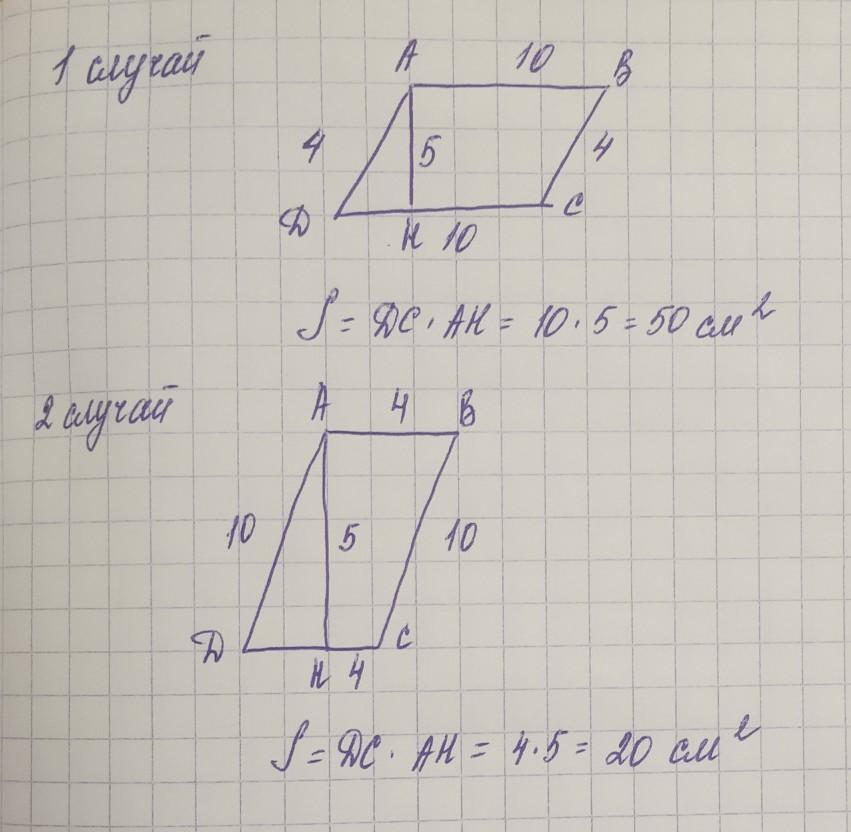 1 случай
A 10 B
4 5 4
D H 10 C
S = DC · AH = 10 · 5 = 50 см²
2 случай
A 4 B
10 5 10
D H 4 C
S = DC · AH = 4 · 5 = 20 см²